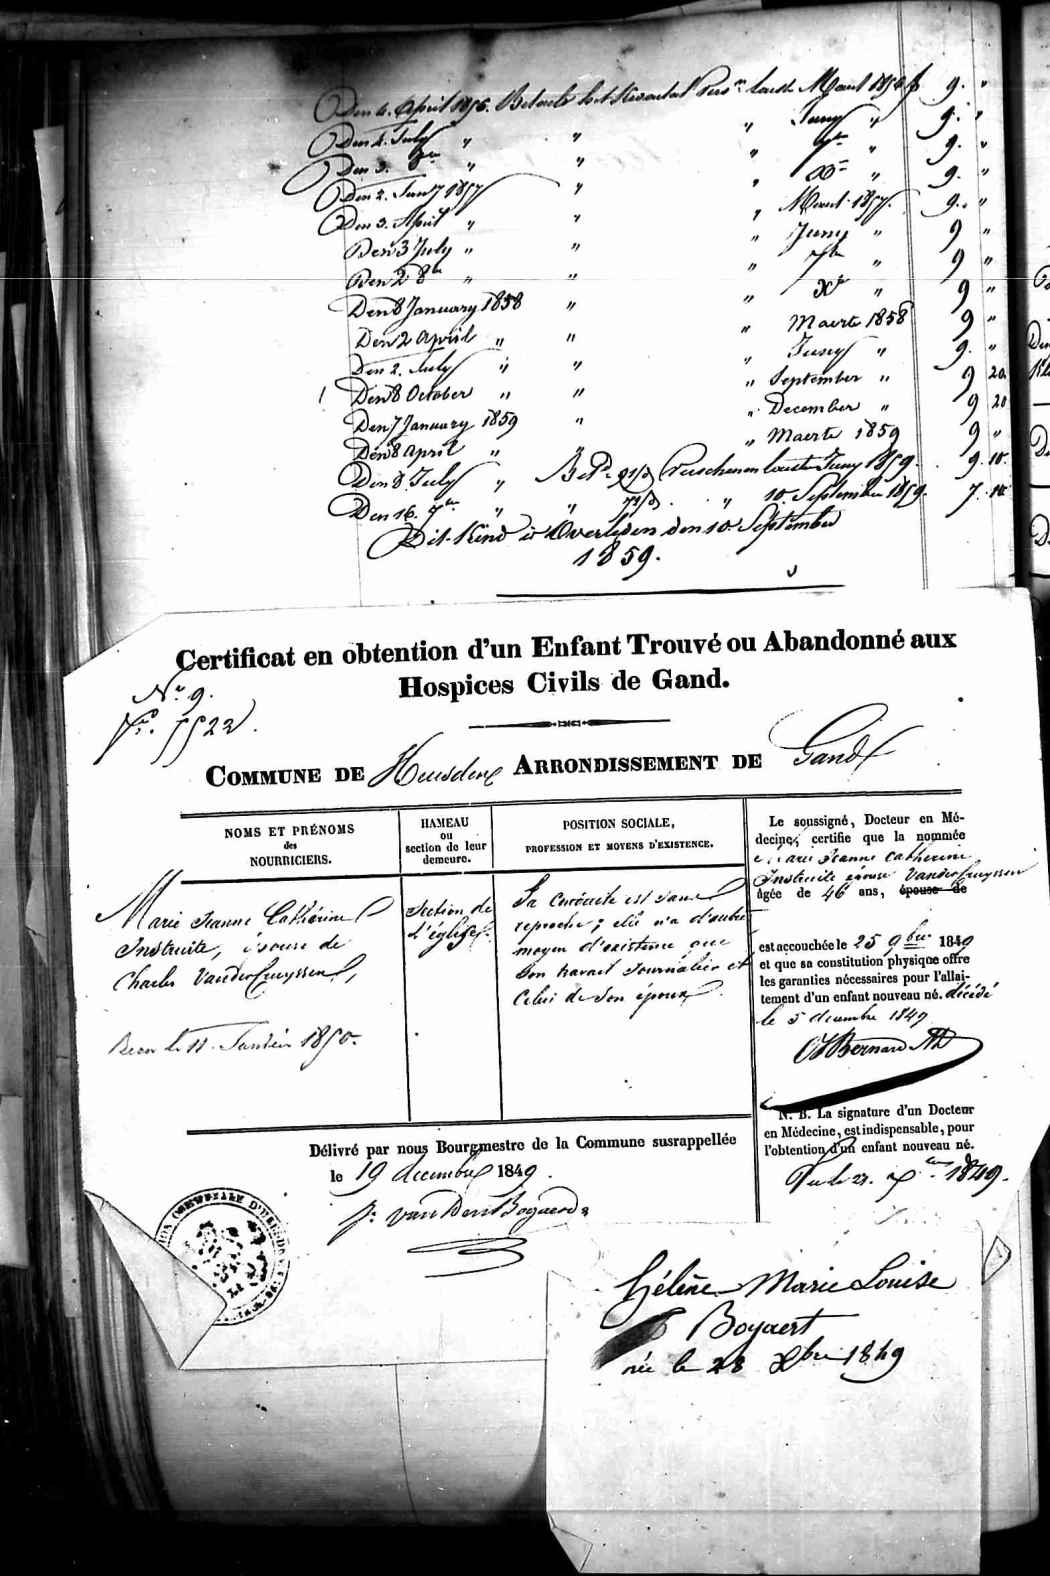 Den 4. April 1856. Betaelt het kwartal Pers.n laeste Maart 1856 f 9. "
Den 4. July " " " Juny " 9. "
Den 3. 8.re " " " 7bre " 9. "
Den 2. Jany 1857 " " Xre " 9. "
Den 3. April " " " Maart 1857. 9. "
Den 3 July " " " Juny " 9 "
Den 2 8re " " " 7bre " 9 "
Den 8 January 1858 " " Xre " 9 "
Den 2 April " " " Maerte 1858 9 "
Den 2. July " " " Juny " 9. "
Den 8 October " " " September " 9 20
Den 7 January 1859 " " December " 9 20
Den 8 April " " " Maerte 1859 9 "
Den 8. July " Bet. 91/3 laeste Juny 1859. 9. 10.
Den 16. 7re " " 71/3 " 10. September 1859. 7. 10.
Dit Kind is Overleden den 10. September
1859.
Certificat en obtention d'un Enfant Trouvé ou Abandonné aux
Hospices Civils de Gand.
No 9.
5522.
COMMUNE DE Heusden ARRONDISSEMENT DE Gand
NOMS ET PRÉNOMS
des
NOURRICIERS.
Marie Jeanne Cathérine
Instruite, épouse de
Charles VanderCruyssen,
le 11. Janvier 1850.
HAMEAU
ou
section de leur
demeure.
Section de
l'église.
POSITION SOCIALE,
PROFESSION ET MOYENS D'EXISTENCE.
Sa conduite est sans
reproche; elle n'a d'autre
moyen d'existence que
son travail journalier et
celui de son époux.
Le soussigné, Docteur en Mé-
decine, certifie que la nommée
Marie Jeanne Catherine
Instruite épouse VanderCruyssen
âgée de 46 ans, épouse de
est accouchée le 25 9bre 1849
et que sa constitution physique offre
les garanties nécessaires pour l'allai-
tement d'un enfant nouveau né. décédé
le 5 decembre 1849
Bernard
N. B. La signature d'un Docteur
en Médecine, est indispensable, pour
l'obtention d'un enfant nouveau né.
1849.
Délivré par nous Bourgmestre de la Commune susrappellée
le 19 decembre 1849.
VanDenBogaerde
Hélène Marie Louise
Bogaert
née le 28 Xbre 1849